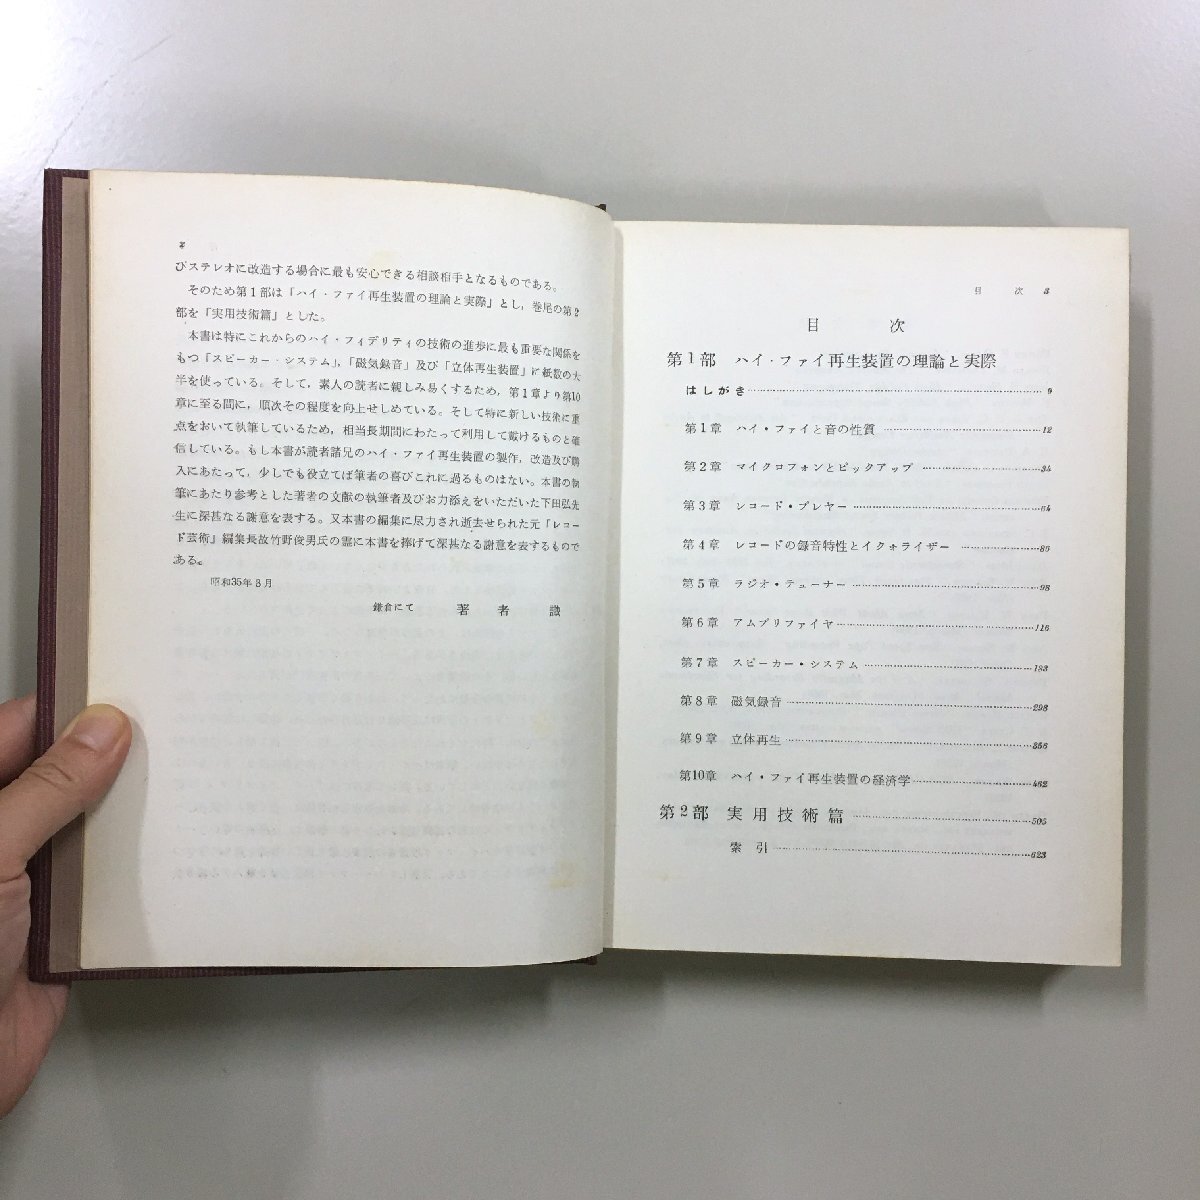 2
びステレオに改造する場合に最も安心できる相談相手となるものである。
そのため第1部は「ハイ・ファイ再生装置の理論と実際」とし，巻尾の第2
部を「実用技術篇」とした。
本書は特にこれからのハイ・フィデリティの技術の進歩に最も重要な関係を
もつ「スピーカー・システム」，「磁気録音」及び「立体再生装置」に紙数の大
半を使っている。そして，素人の読者に親しみ易くするため，第1章より第10
章に至る間に，順次その程度を向上せしめている。そして特に新しい技術に重
点をおいて執筆しているため，相当長期間にわたって利用して戴けるものと確
信している。もし本書が読者諸兄のハイ・ファイ再生装置の製作，改造及び購
入にあたって，少しでも役立てば筆者の喜びこれに過るものはない。本書の執
筆にあたり参考とした著者の文献の執筆者及びお力添えをいただいた下田弘先
生に深甚なる謝意を表する。又本書の編集に尽力され逝去せられた元『レコー
ド芸術』編集長故竹野俊男氏の霊に本書を捧げて深甚なる謝意を表するもので
ある。
昭和35年8月
鎌倉にて 著者 識
目次 3
目次
第1部 ハイ・ファイ再生装置の理論と実際
はしがき…………9
第1章 ハイ・ファイと音の性質…………12
第2章 マイクロフォンとピックアップ…………34
第3章 レコード・プレヤー…………64
第4章 レコードの録音特性とイクォライザー…………86
第5章 ラジオ・テューナー…………98
第6章 アムプリファイヤ…………116
第7章 スピーカー・システム…………193
第8章 磁気録音…………298
第9章 立体再生…………356
第10章 ハイ・ファイ再生装置の経済学…………462
第2部 実用技術篇…………505
索引…………623